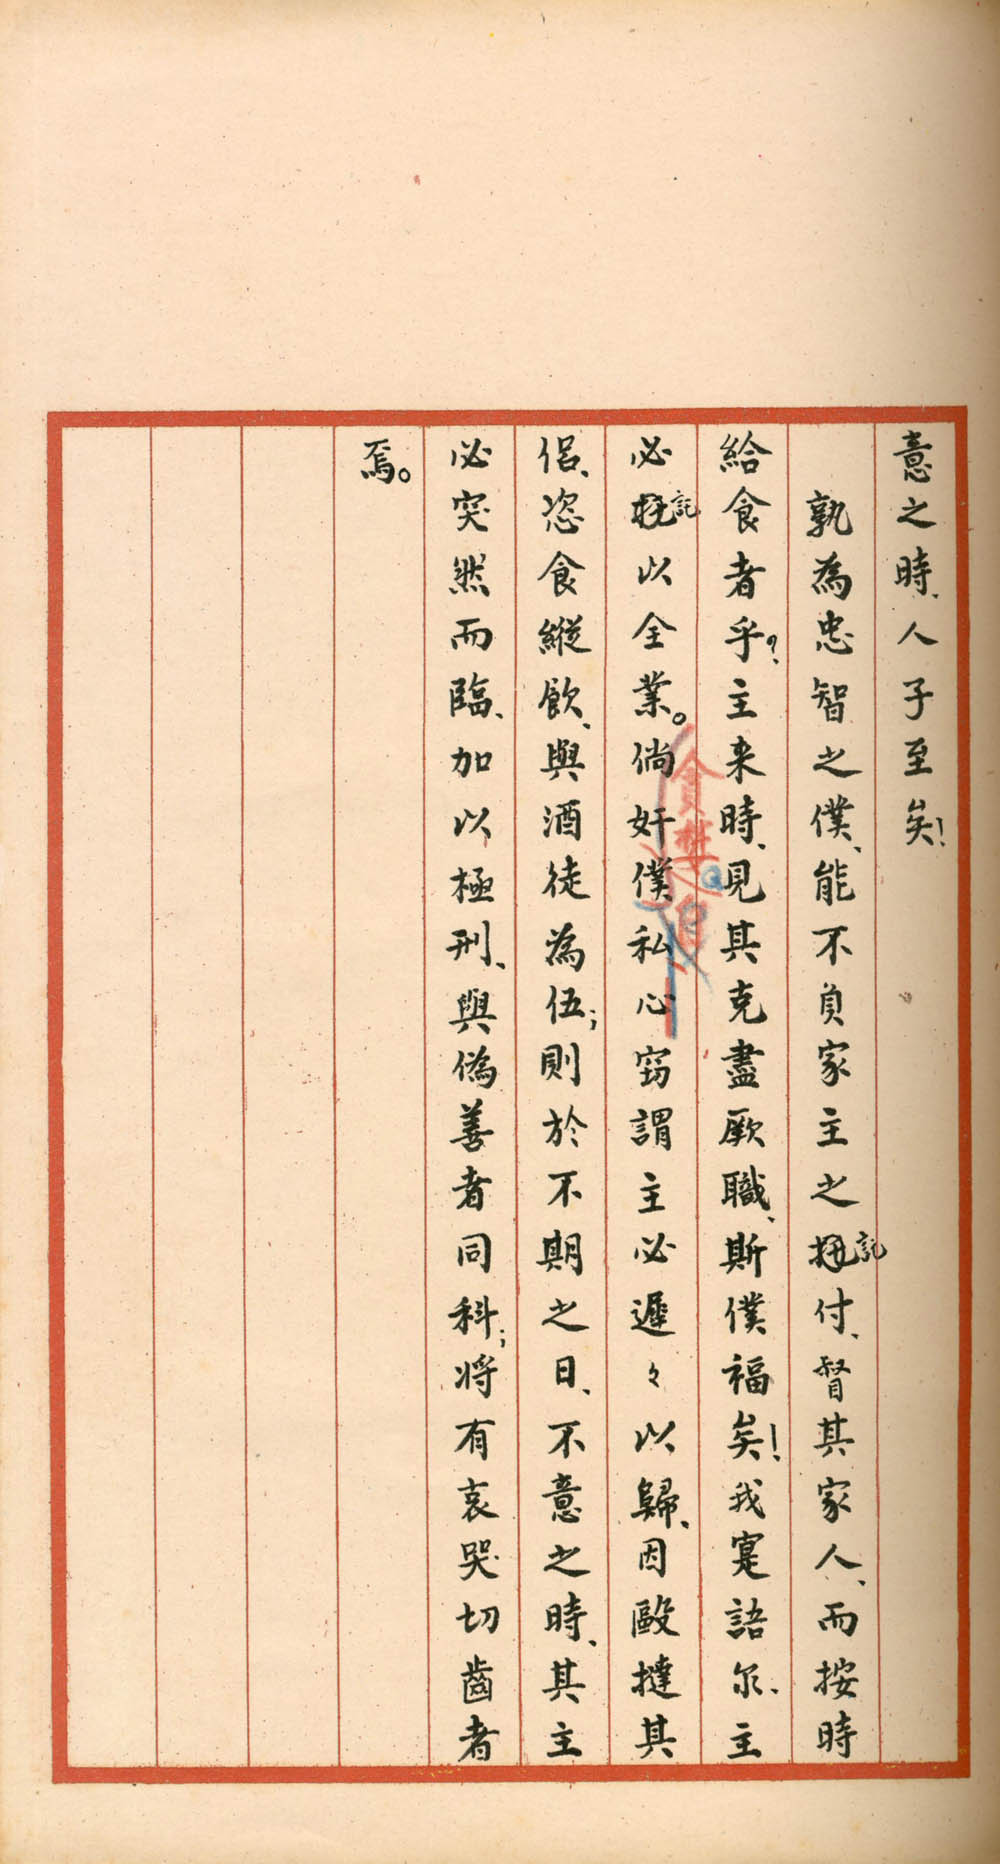 意之時、人子至矣!
孰為忠智之僕、能不負家主之託付、督其家人、而按時
給食者乎?主来時、見其克盡厥職、斯僕福矣!我寔語尔、主
必託以全業。倘奸僕私心窃謂主必遲々以歸、因毆撻其
侶、恣食縱飲、與酒徒為伍;則於不期之日、不意之時、其主
必突然而臨、加以極刑、與偽善者同科;将有哀哭切齒者
焉。